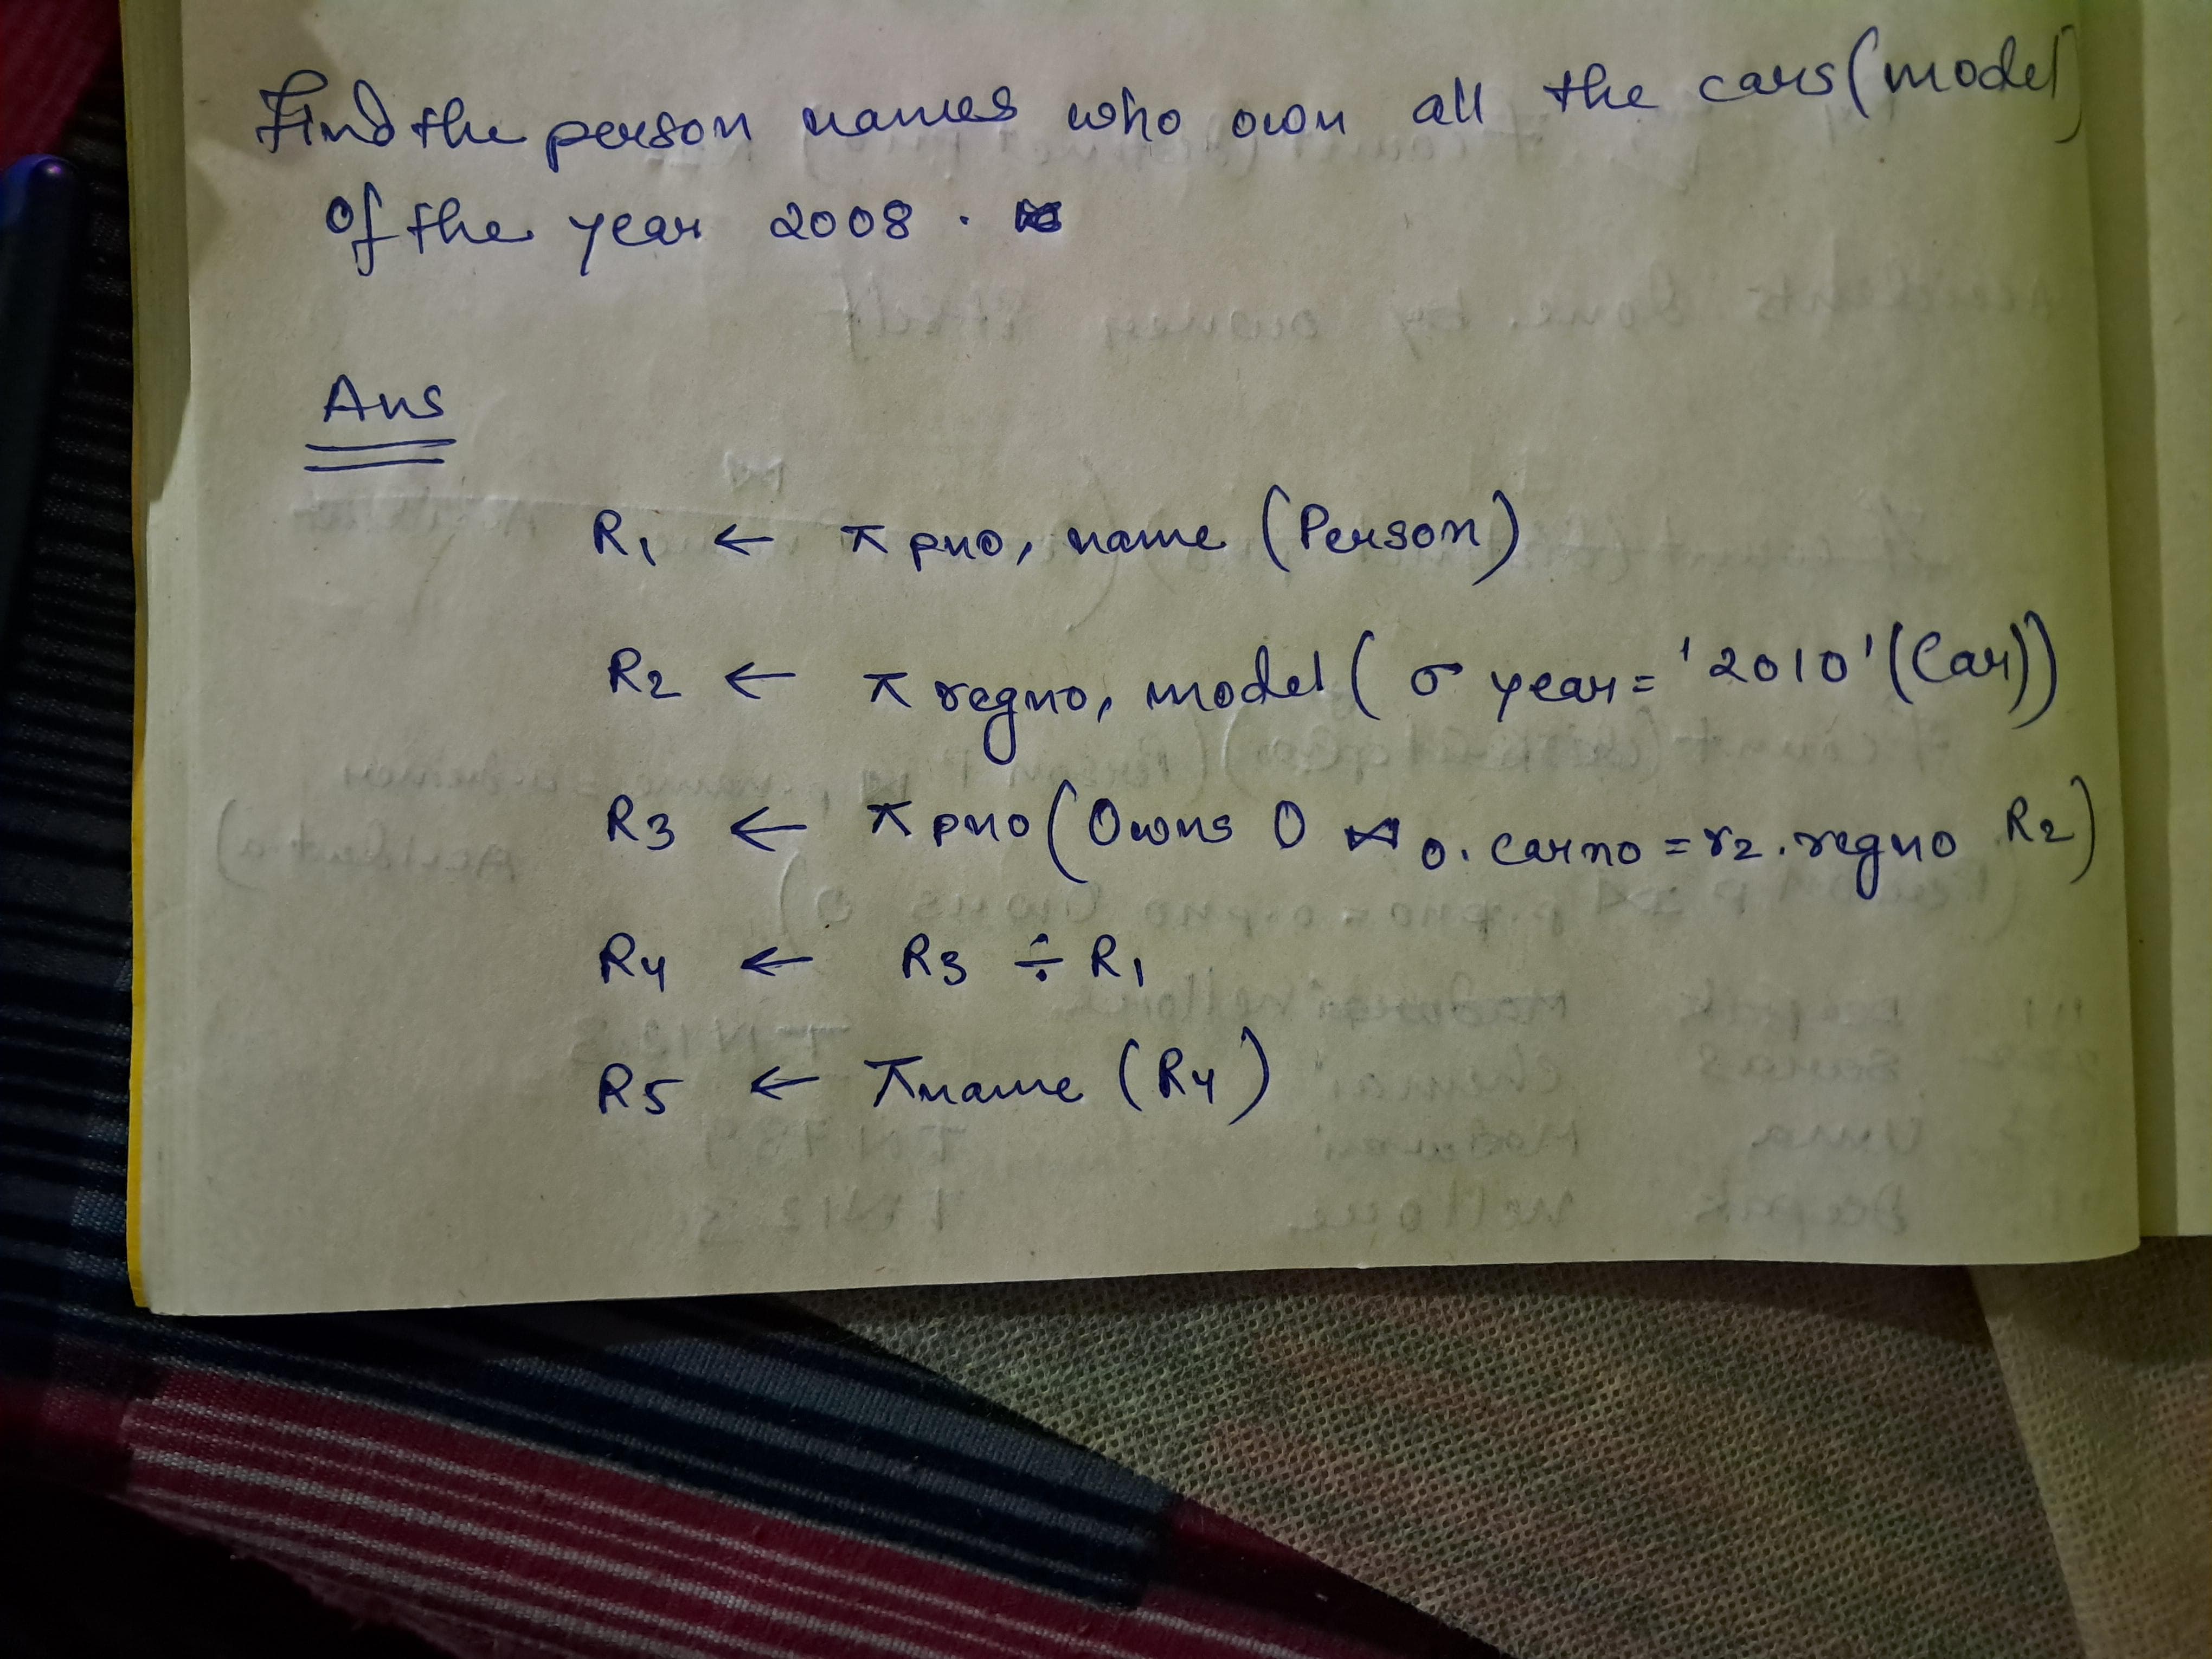 Find the person names who own all the cars (model)
of the year 2008.
Ans
R1 ← π pno, name (Person)
R2 ← π regno, model (σ year = '2010' (Car))
R3 ← π pno (Owns O ⋈ o.carno = r2.regno R2)
R4 ← R3 ÷ R1
R5 ← π name (R4)